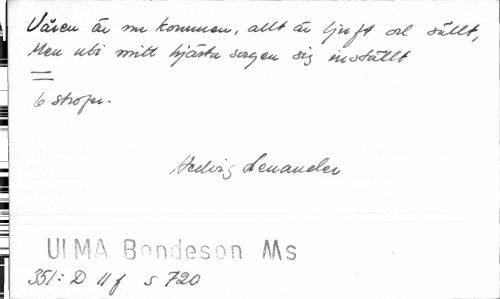 Våren är nu kommen, allt är ljuft och sällt,
Men uti mitt hjärta sorgen sig inställt
6 strofer.
Hedvig Lenander
ULMA Bondeson Ms
351: D 11 f s 720